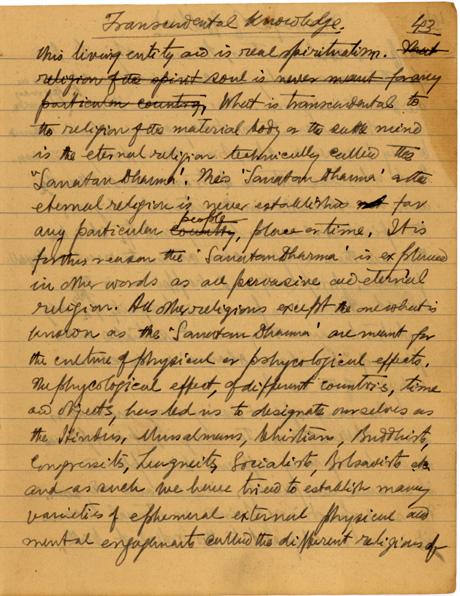 Transcendental Knowledge. 43
this living entity and is real spiritualism. That
religion of the spirit soul is never meant for any
particular country, What is transcendental to
the religion of the material body or the subtle mind
is the eternal religion technically called the
"Sanatan Dharma'. This 'Sanatan Dharma' or the
eternal religion is never established not for
any particular country people, place or time. It is
for this reason the 'Sanatan Dharma' is explained
in other words as all pervasive and eternal
religion. All other religions except the one what is
known as the 'Sanatan Dharma' are meant for
the culture of physical or pshycological effects.
The phycological effect, of different countris, time
and objects, has led us to designate ourselves as
the Hindus, Musalmans, Christians, Buddhist,
Congressits, Leagueits, Socialists, Bolsavists etc
and as such we have tried to establish many
varieties of ephemeral external physical and
mental engagments called the different religions of